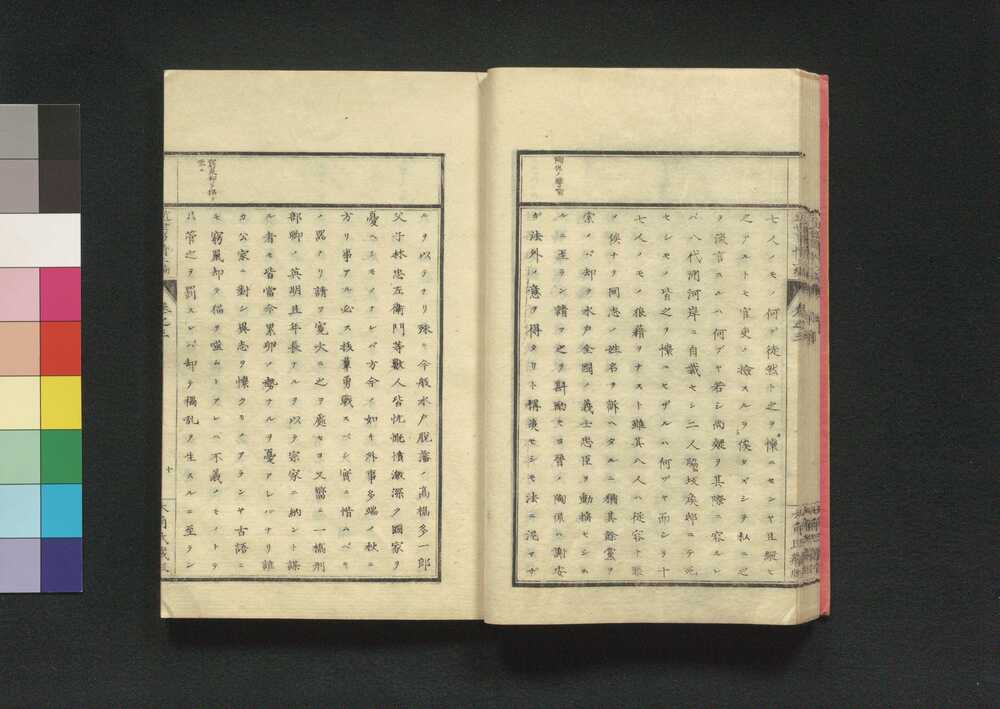 陶侃ノ譬喩
七人ノモノ何ゾ徒然ト之ヲ懐ニセンヤ且縦モ
之アルトモ官吏ノ檢スルヲ俟タズシテ私ニ之
ヲ流言スルハ何ゾヤ若シ尚疑ヲ其際ニ容ルレ
バ八代洲河岸ニ自裁セシ二人脇坂矦邸ニテ死
セシモノ皆之ヲ懐ニセザルハ何ゾヤ而シテ十
七人ノモノ狼藉ヲナスト雖其八人ハ従容ト
ヲ俟ナリ同志ノ姓名ヲ訴ヘタルニ猶其餘黨ヲ
索メバ却テ水戸全國ノ義士忠臣ヲ動揺セシム
ルニ至ラン請フ之ヲ斟酌セヨ晉ノ陶侃ハ謝安
ガ法外ノ意ヲ得タリト稱美セシモ法ニ泥マザ
卷之三
窮鼠却テ猫ヲ
噬ム
ルヲ以テナリ殊ニ今般水戸脱藩ノ高橋多一郎
父子林忠左衛門等數人皆忼慨憤激深ク國家ヲ
憂ヘシモノナレバ方今ノ如キ外事多端ノ秋ニ
方リ事アル必ス抜羣勇戰スベシ實ニ惜ハベキ
ノ異ナリ請フ寛大ニ之ヲ處セヨ又嚮ニ一橋刑
部卿ノ英明且年長ナルヲ以テ宗家ニ納ント謀
ル者モ皆當今累卵ノ勢ナルヲ憂アレバナリ誰
カ公家ニ對シ異志ヲ懐クモノアランヤ古語ニ
モ窮鼠却テ猫ヲ噬ムトアレバ不義ノモノトテ
モ管之ヲ罰スレバ却テ禍乱ヲ生スルニ至ラン
十